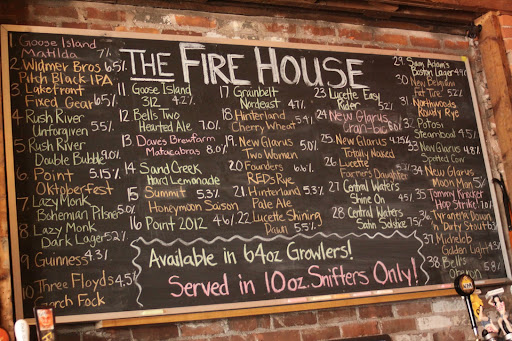 THE FIRE HOUSE
1 Goose Island
Matilda 7%
2 Widmer Bros 6.5%
Pitch Black IPA
3 Lakefront
Fixed Gear 6.5%
4 Rush River
Unforgiven 5.5%
5 Rush River
Double Bubble 9.0%
6 Point 5.15%
Oktoberfest
7 Lazy Monk
Bohemian Pilsner 5.0%
8 Lazy Monk
Dark Lager 5.2%
9 Guinness 4.3%
10
Three Floyds 4.5%
11 Goose Island
312 4.2%
12 Bells Two
Hearted Ale 7.0%
13 Daves Brewfarm
Matacabras 8.0%
14 Sand Creek
Hard Lemonade
15 Summit 5.3%
Honeymoon Saison
16 Point 2012 4.6%
17 Grainbelt
Nordeast 4.7%
18 Hinterland
Cherry Wheat
19 New Glarus
Two Women
20 Founders 6.6%
REDs Rye
21 Hinterland
Pale Ale
22 Lucette Shining
Dawn 5.5%
23 Lucette Easy
Rider 5%
24 New Glarus
Cran-bic
25 New Glarus
Totally Naked
26 Lucette
Farmer's Daughter
27 Central Waters
Shine On
28 Central Waters
Satin Solstice
29 Sam Adam's
Boston Lager
30 New Belgium
Fat Tire
31 Northwoods
Rowdy Rye
32 Potosi
Steamboat
33 New Glarus
Spotted Cow
34 New Glarus
Moon
35 Tommy
Hop Strike!
36
Dirty Stout
37 Michelob
Golden Light
38 Bell's
Oberon
Available in 64oz Growlers!
Served in 10oz. Snifters Only!